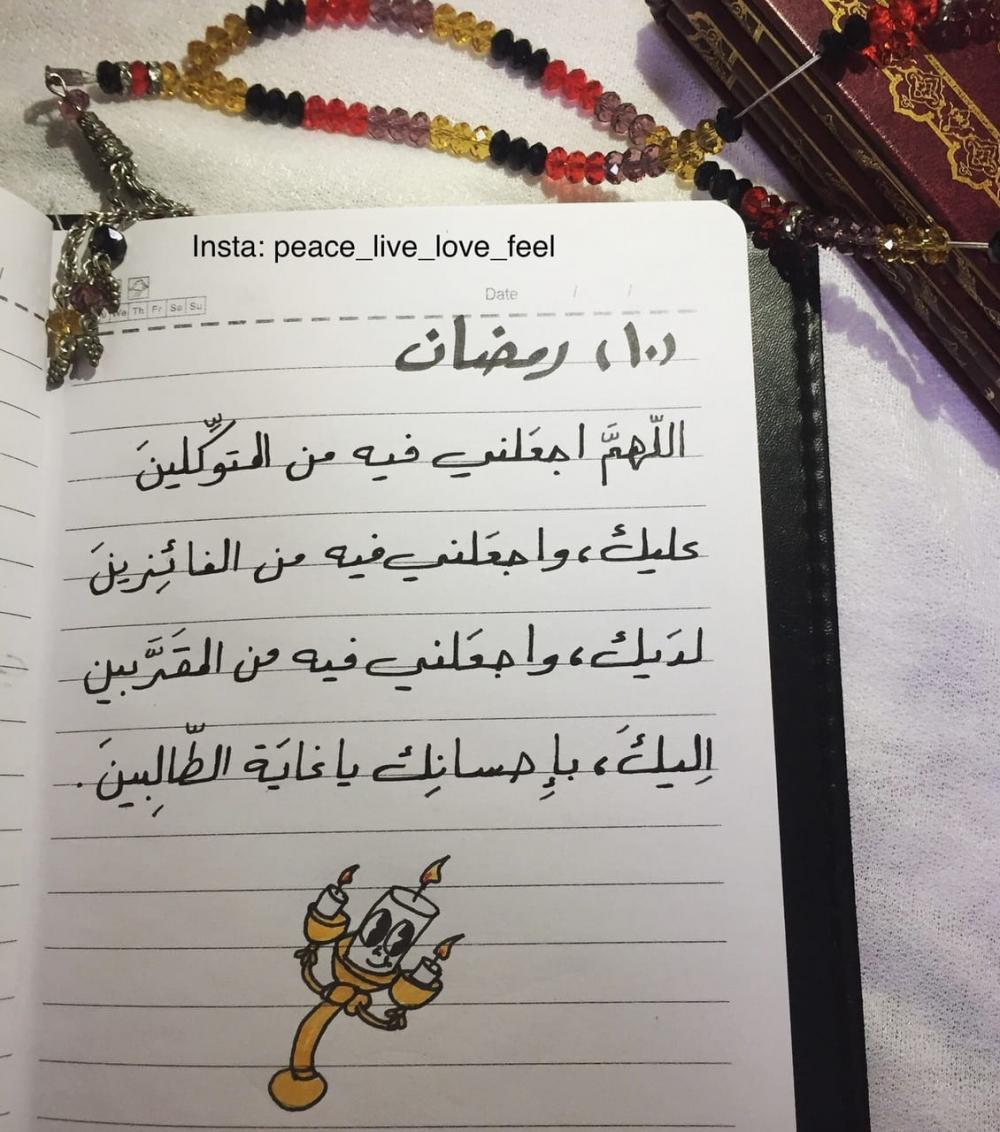 Insta: peace_live_love_feel
Date / /
We Th Fr Sa Su
(١٠) رمضان
اللّهمَّ اجعَلني فيه من المتوكِّلينَ
عليكَ، واجعَلني فيه من الفائِزينَ
لدَيكَ، واجعَلني فيه من المقَرَّبين
اِليكَ، بإِحسانِك ياغايَة الطّالِبينَ.